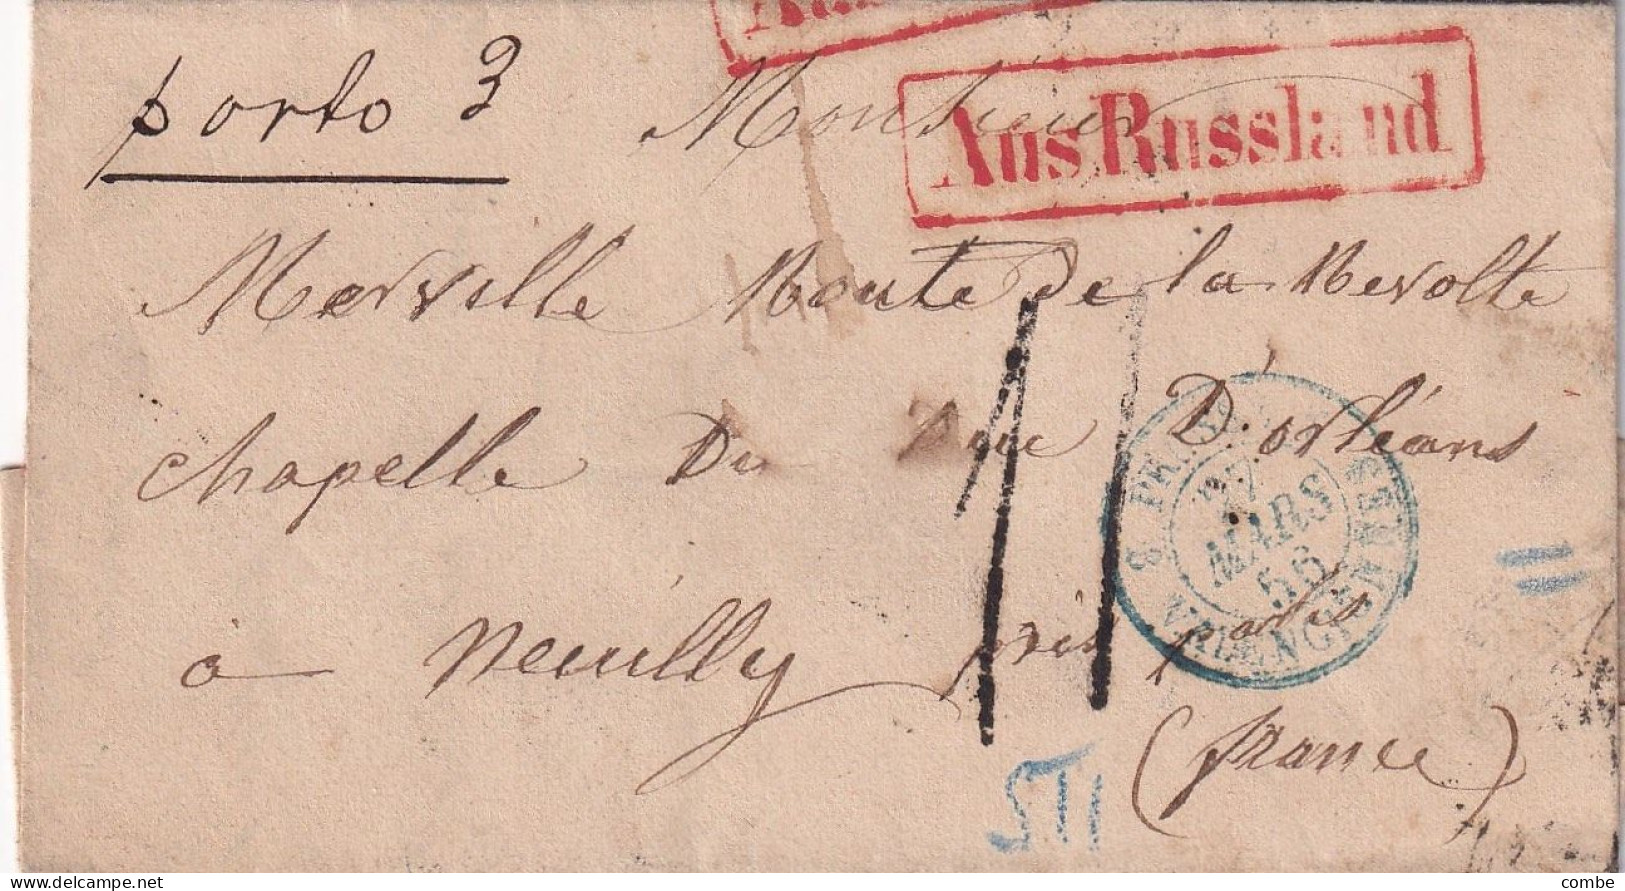 porto 3
Monsieur
Aus Russland
Merville Route de la Revolte
chapelle Du Duc D'orléans
à Neuilly près paris
(france)
11
27
MARS
56
VALENCIENNES
delcampe.net
combe